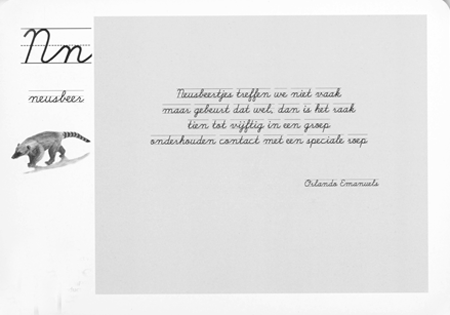 Nn
neusbeer
Neusbeertjes treffen we niet vaak
maar gebeurt dat wel, dan is het raak
tien tot vijftig in een groep
onderhouden contact met een speciale roep
Orlando Emanuels